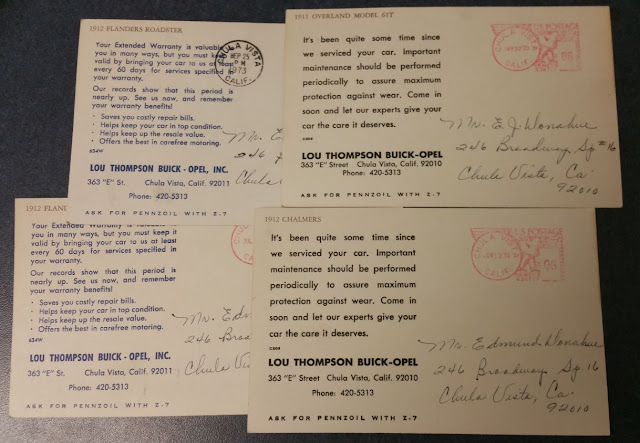 1912 FLANDERS ROADSTER
Your Extended Warranty is valuable
you in many ways, but you must keep it
valid by bringing your car to us at least
every 60 days for services specified in
your warranty.
Our records show that this period is
nearly up. See us now, and remember
your warranty benefits!
• Saves you costly repair bills.
• Helps keep your car in top condition.
• Helps keep up the resale value.
• Offers the best in carefree motoring.
LOU THOMPSON BUICK - OPEL, INC.
363 "E" St. Chula Vista, Calif. 92011
Phone: 420-5313
ASK FOR PENNZOIL WITH Z-7
CHULA VISTA
PM
1973
CALIF.
Mr. E
246
Chula
1911 OVERLAND MODEL 61T
It's been quite some time since
we serviced your car. Important
maintenance should be performed
periodically to assure maximum
protection against wear. Come in
soon and let our experts give your
car the care it deserves.
LOU THOMPSON BUICK-OPEL
363 "E" Street Chula Vista, Calif. 92010
Phone: 420-5313
ASK FOR PENNZOIL WITH Z-7
CHULA VISTA
CALIF.
U.S. POSTAGE
Mr. E. J. Donahue
246 Broadway Sp #16
Chula Vista, Ca.
92010
1912 FLAND
Your Extended Warranty is valuable
you in many ways, but you must keep it
valid by bringing your car to us at least
every 60 days for services specified in
your warranty.
Our records show that this period is
nearly up. See us now, and remember
your warranty benefits!
• Saves you costly repair bills.
• Helps keep your car in top condition.
• Helps keep up the resale value.
• Offers the best in carefree motoring.
LOU THOMPSON BUICK - OPEL, INC.
363 "E" St. Chula Vista, Calif. 92011
Phone: 420-5313
ASK FOR PENNZOIL WITH Z-7
Mr. Edm
246 Broad
Chula Vis
1912 CHALMERS
It's been quite some time since
we serviced your car. Important
maintenance should be performed
periodically to assure maximum
protection against wear. Come in
soon and let our experts give your
car the care it deserves.
LOU THOMPSON BUICK-OPEL
363 "E" Street Chula Vista, Calif. 92010
Phone: 420-5313
ASK FOR PENNZOIL WITH Z-7
CHULA VISTA
CALIF.
Mr. Edmund Donahue
246 Broadway Sp. 16
Chula Vista, Ca.
92010